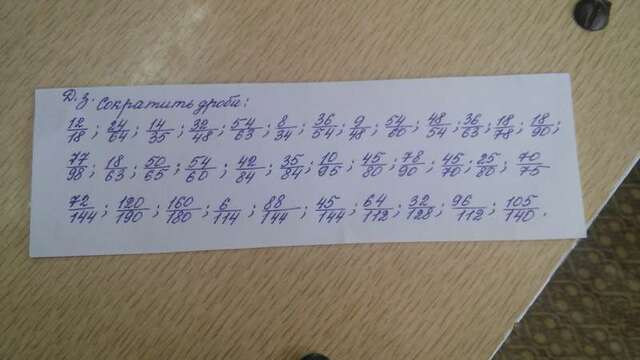 Д.з. Сократить дроби:
12/18; 24/64; 14/35; 32/48; 54/63; 8/34; 36/54; 9/48; 54/60; 48/54; 36/63; 18/78; 18/90;
77/98; 18/63; 50/65; 54/60; 42/84; 35/84; 10/95; 45/80; 78/90; 45/70; 25/80; 70/75
72/144; 120/190; 160/180; 6/114; 88/144; 45/144; 64/112; 32/128; 96/112; 105/140.